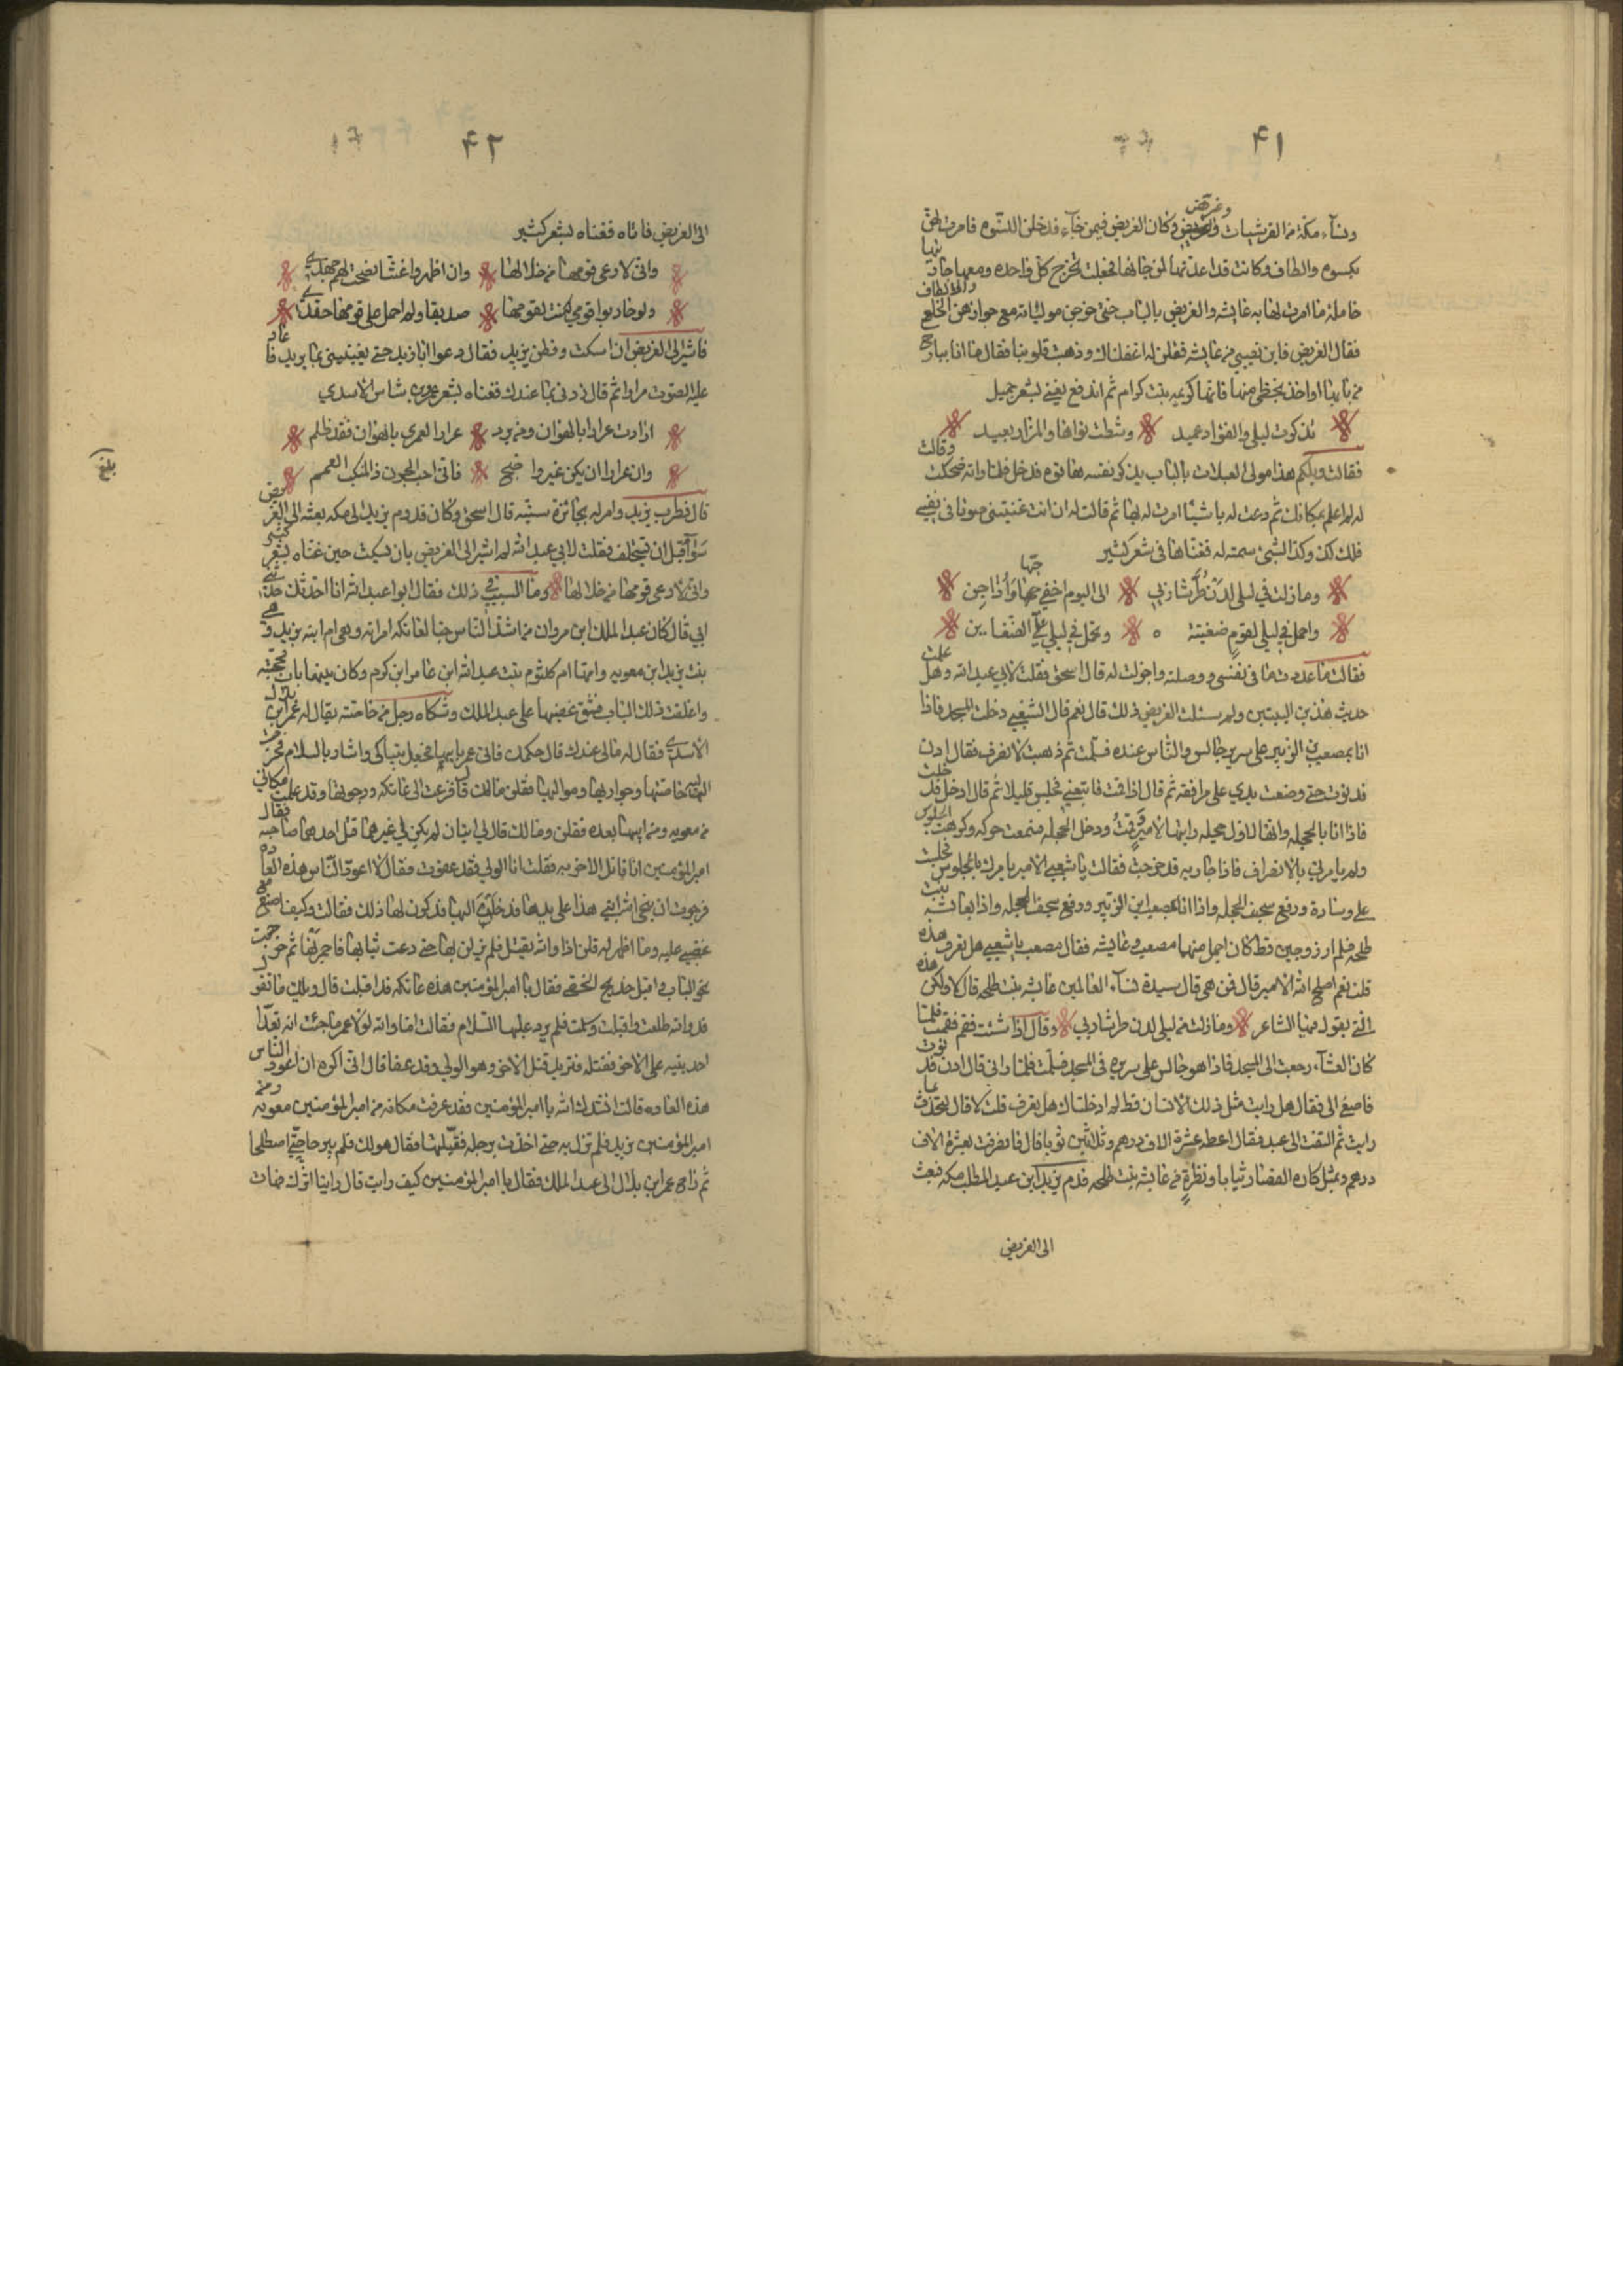 ٤١
ونسآء مكة من القرشيات وغريض وكان الغريض فيمن جآء فدخلن النسوه فامرت لهن
بكسوه والطاف وكانت قد اعدتها لمن جائها فجعلت تخرج كل واحده ومعها جاريتها
حاملة ما امرت لها به عايشه والغريض بالباب حتى خرجن مولياته مع جوارهن الخلع والالطاف
فقال الغريض فاين نصيبي من عايشه فقلن له اغفلناك وذهبت قلوبنا فقال ما انا ببارح
من بابها او اخذ بحظي منها فانها كريمه بنت كرام ثم اندفع يغني بشعر جميل
تذكرت ليلى والفؤاد عميد وشطت نواها والمزار بعيد
فقالت ويلكم هذا مولى العبلات بالباب يذكر بنفسه هاتوه فدخل فلما راته ضحكت وقالت
له لم اعلم بمكانك ثم دعت له باشيآ امرت له بها ثم قالت له ان انت غنيتني صوتا في نفسي
فلك كذا وكذا الشئ سمته له فغناها في شعر كثير
وما زلت في ليلى لدن طر شاربي الى اليوم اخفي حبها واداجن
واحمل في ليلى لقوم ضغينة وتحمل في ليلى علي الضغاين
فقالت ما عدوت ما في نفسي ووصلته واجزلت له قال اسحق فقلت لابي عبد الله وهل علمت
حديث هذين البيتين ولم سئلت الغريض ذلك قال نعم قال الشعبي دخلت المسجد فاذا
انا بمصعب بن الزبير على سرير جالس والناس عنده فسلمت ثم ذهبت لانصرف فقال ادن
فدنوت حتى وضعت يدي على مرافقه ثم قال اذا قمت فاتبعني فجلس قليلا ثم قال ادخل فدخلت
فاذا انا بالحجله وانها لاول حجله رايتها لامير فقمت ودخل الحجله فسمعت حركه وكرهت الجلوس
ولم يامرني بالانصراف فاذا جاريه قد خرجت فقالت يا شعبي الامير يامرك بالجلوس فجلست
على وسادة ورفع سجف الحجله واذا انا بمصعب ابن الزبير ورفع سجف الحجله واذا بعايشه بنت
طلحه فلم ار زوجين قط كان اجمل منهما مصعب وعايشه فقال مصعب يا شعبي هل تعرف هذه
قلت نعم اصلح الله الامير قال فمن هي قال سيدة نسآء العالمين عايشه بنت طلحه قال لا ولكن هذه
التي يقول فيها الشاعر وما زلت من ليلى لدن طر شاربي وقال اذا شئت فقم فقمت فلما
كان العشآء رجعت الى المسجد فاذا هو جالس على سريره في المسجد فسلمت فلما راني قال ادن فدنوت
فاصغى الي فقال هل رايت مثل ذلك لانسان قط لم ادخلناك هل تعرف قلت لا قال لتحدث بما
رايت ثم التفت الى عبد فقال اعطه عشرة الاف درهم وثلاثين ثوبا قال فانصرفت بعشرة الاف
درهم وبمثل كاره القصار ثيابا ونظرة من عايشه بنت طلحه قدم يزيد ابن عبد المطلب مكه فبعث
الى الغريض
٤٢
الى الغريض فاتاه فغناه بشعر كثير
واني لارعى قومها من خلالها وان اظهروا غشا نصحت لهم جهدي
ولو حاربوا قومي لكنت لقومها صديقا ولم احمل على قومها حقدي
فاشير الى الغريض ان اسكت وفطن يزيد فقال دعوا ابا زيد حتى يغنيني بما يريد فاعاد
عليه الصوت مرارا ثم قال زدني بما عندك فغناه بشعر عمرو بن شاس الاسدي
ارادت عرارا بالهوان ومن يرد عرارا لعمري بالهوان فقد ظلم
وان عرارا ان يكن غير واضح فاني احب الجون ذا المنكب العمم
بلغ
قال فطرب يزيد وامر له بجائزة سنيه قال اسحق وكان قدوم يزيد الى مكه بعثه الى الغريض
سرا قبل ان يستخلف فقلت لابي عبد الله لم اشير الى الغريض بان يسكت حين غناه بشعر كثير
واني لارعى قومها من خلالها وما السبب في ذلك فقال ابو عبد الله انا احدثك حدثني
ابي قال كان عبد الملك ابن مروان من اشد الناس حبا لعاتكه امراته وهي ام ابنه يزيد وهي
بنت يزيد ابن معويه وامها ام كلثوم بنت عبد الله ابن عامر ابن كريم وكان بينهما باب فحجبته
واغلقت ذلك الباب فشق غضبها على عبد الملك وشكاه رجل من خاصته يقال له عمر ابن بلال
الاسدي فقال له مالي عندك قال حكمك فاتى عمر بابها فجعل يتباكى وارسل بالسلام فخرجت
اليه خاصتها وجواريها ومواليها فقلن مالك قال فزعت الى عاتكه ورجوتها وقد علمت مكاني
من معويه ومن ابيها بعده فقلن ومالك قال لي ابنان لم يكن لي غيرهما قتل احدهما صاحبه فقال
امير المؤمنين انا قاتل الاخر به فقلت انا الولي وقد عفوت فقال لا اعود الناس هذه العاده
فرجوت ان ينجي الله ابني هذا على يدها فدخلن اليها فذكرن لها ذلك فقالت وكيف اصنع مع
غضبي عليه وما اظهر له قلن اذا والله يقتل فلم يزلن بها حتى دعت ثيابها فاجمرتها ثم خرجت
نحو الباب واقبل خديج الخصي فقال يا امير المؤمنين هذه عاتكه قد اقبلت قال ويلك ما تقول
قد والله طلعت واقبلت وسلمت فلم يرد عليها السلام فقالت اما والله لولا عمر ما جئت انه تعدا
احد بنيه على الاخر فقتله فتريد قتل الاخر وهو الولي وقد عفا قال اني اكره ان اعود الناس
هذه العاده قالت انشدك الله يا امير المؤمنين فقد عرفت مكانه من امير المؤمنين معويه ومن
امير المؤمنين يزيد فلم تزل به حتى اخذت برجله فقبلتها فقال هو لك فلم يبرحا حتى اصطلحا
ثم راح عمر ابن بلال الى عبد الملك فقال يا امير المؤمنين كيف رايت قال راينا اثرك فهات